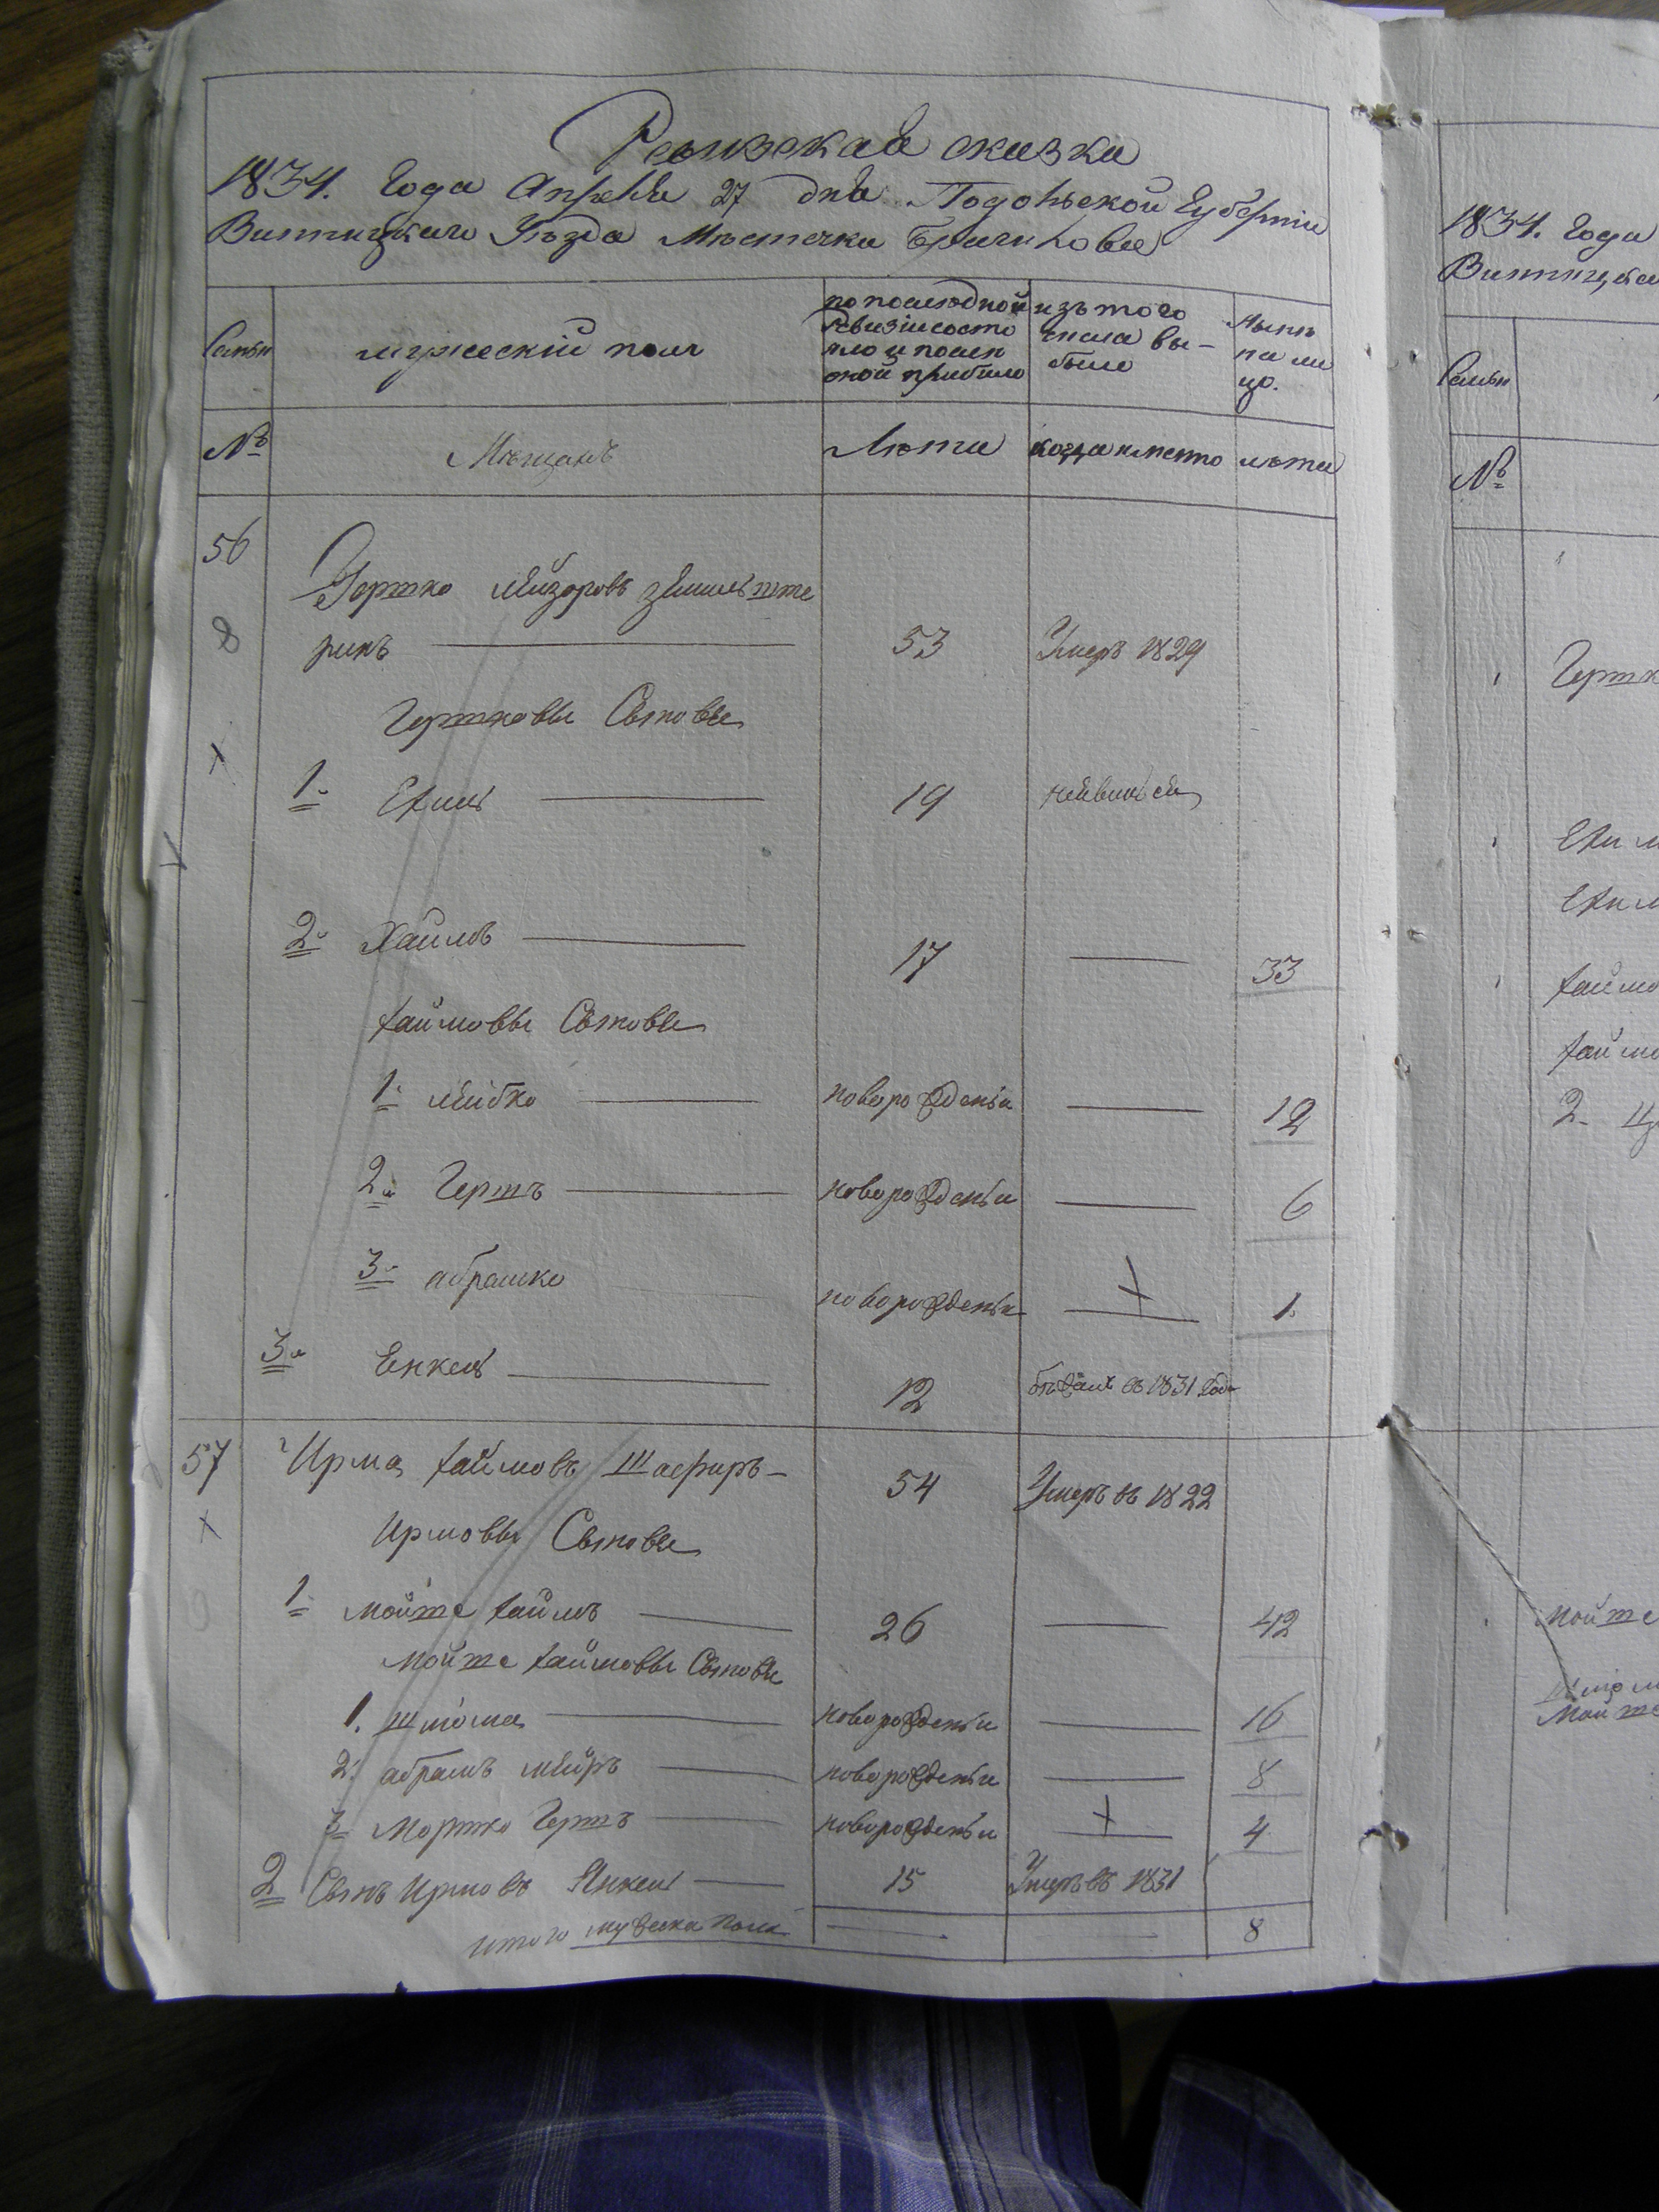 Ревизская сказка
1834. Года Апреля 27 дня Подольской Губернии
Винницкаго Уезда Местечка Браилова
Семьи
мужескій полъ
по последной
ревизіи состо
яло и после
оной прибыло
изъ того
числа вы-
было
ныне
на ли
цо.
№
Мещанъ
Лета
когда именно
лета
56
Гершко Лейзоровъ
рикъ
53
Умеръ 1829
8
Гершковы Сыновья
1й
Ехиль
19
неявился
2й
Хаимъ
17
33
хаймовы Сыновья
1й лейбко
новорожденый
12
2й Гершъ
новорожденый
6
3й абрамко
новорожденый
1
3й
Енкель
12
въ 1831 годе
57
Ирма хаймовъ Шафиръ
54
Умеръ въ 1822
Ирмовы Сыновья
1й
мойше хаимъ
26
42
мойше хаимовы Сыновья
1. шлёма
новорожденый
16
2. абрамъ мейръ
новорожденый
8
3 Мортко Гершъ
новорожденый
4
2 Сынъ Ирмовъ Янкель
15
Умеръ въ 1831
итого мужеска пола
8
1834. Года
№
мойше